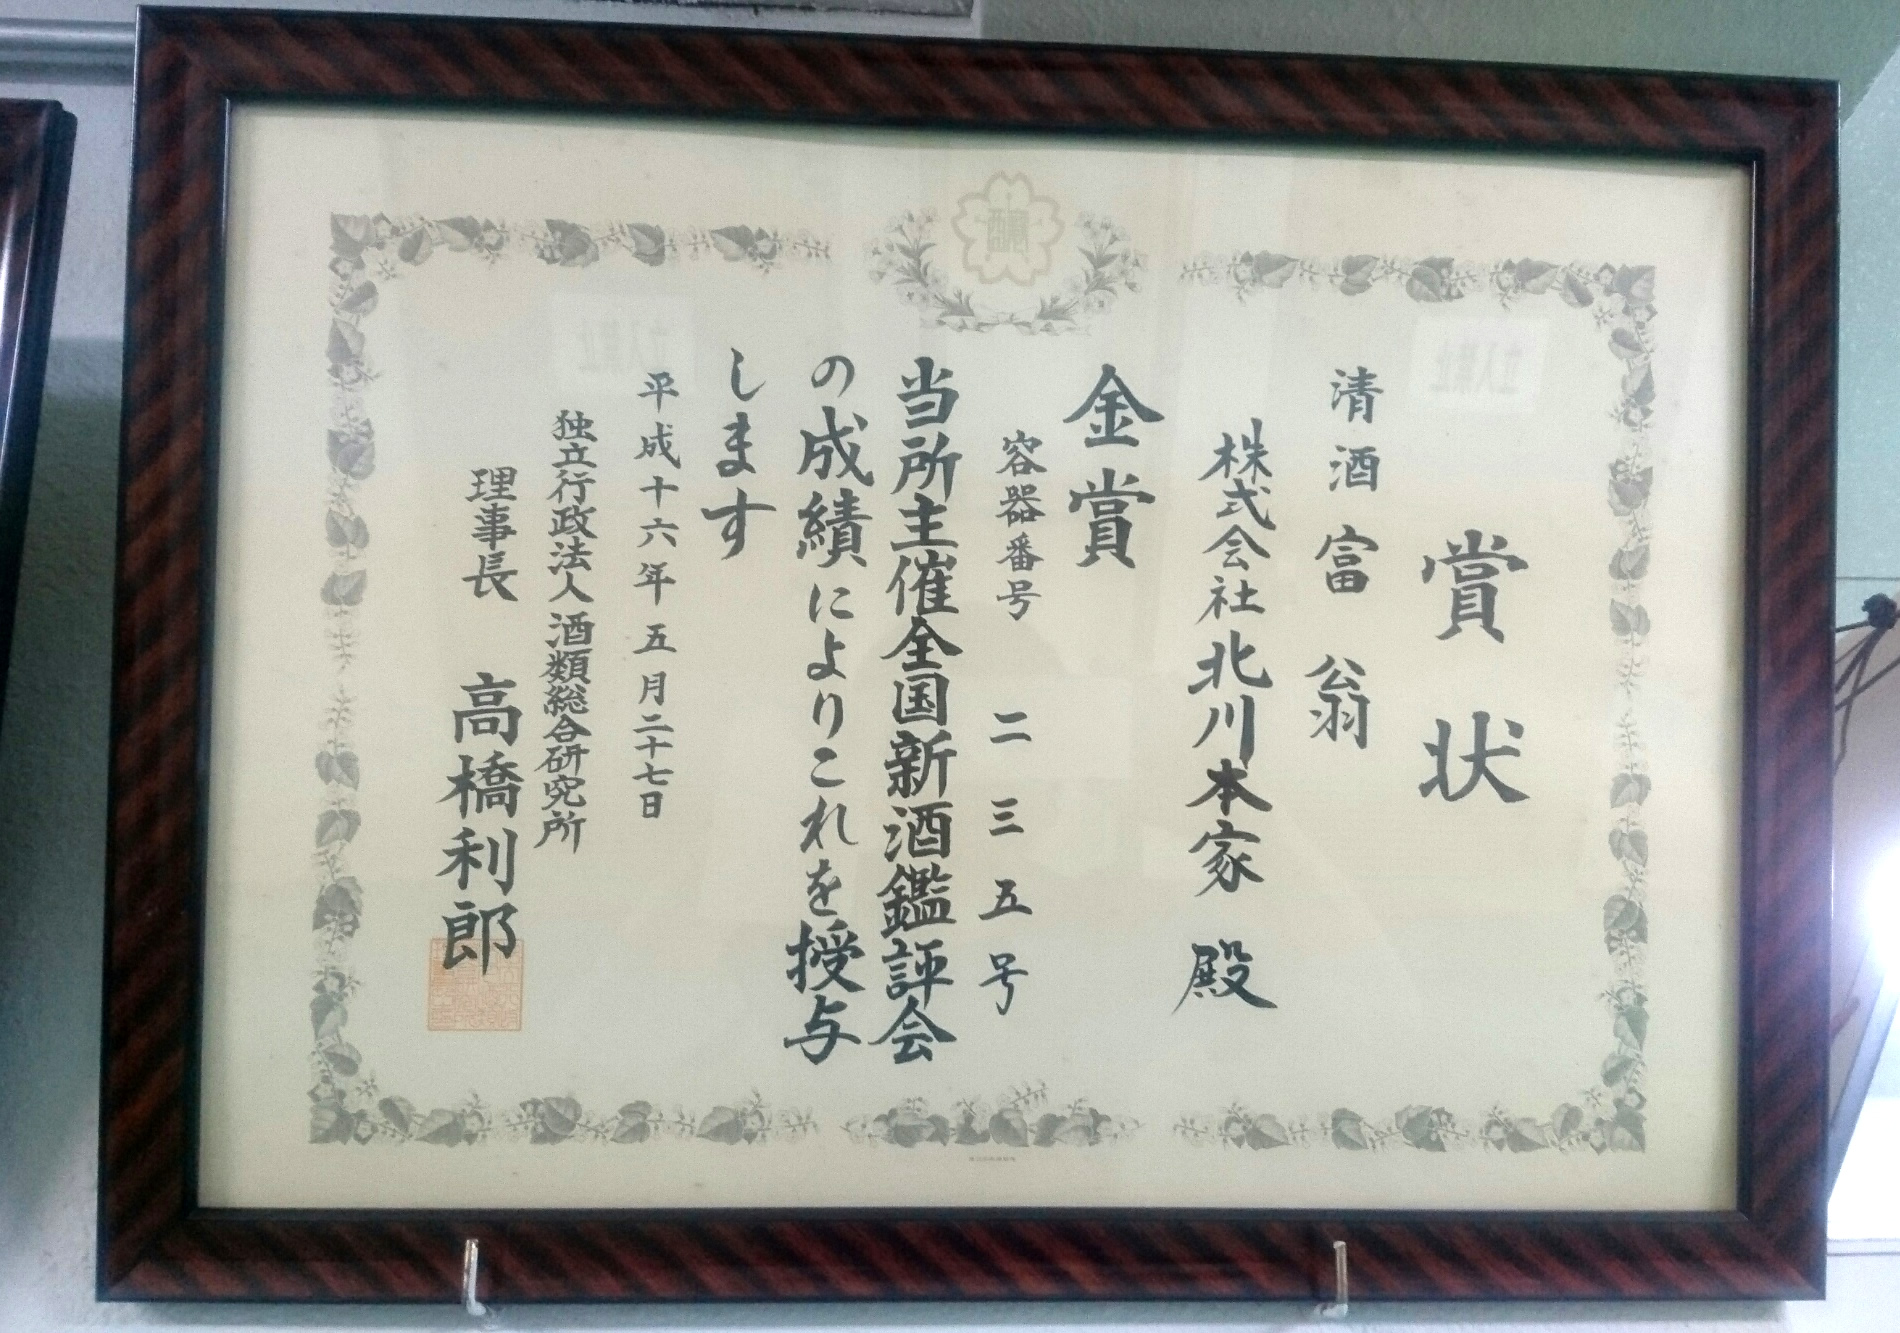 賞状
清酒 富翁
株式会社北川本家 殿
金賞
容器番号 二三五号
当所主催全国新酒鑑評会
の成績によりこれを授与
します
平成十六年五月二十七日
独立行政法人酒類総合研究所
理事長 高橋利郎